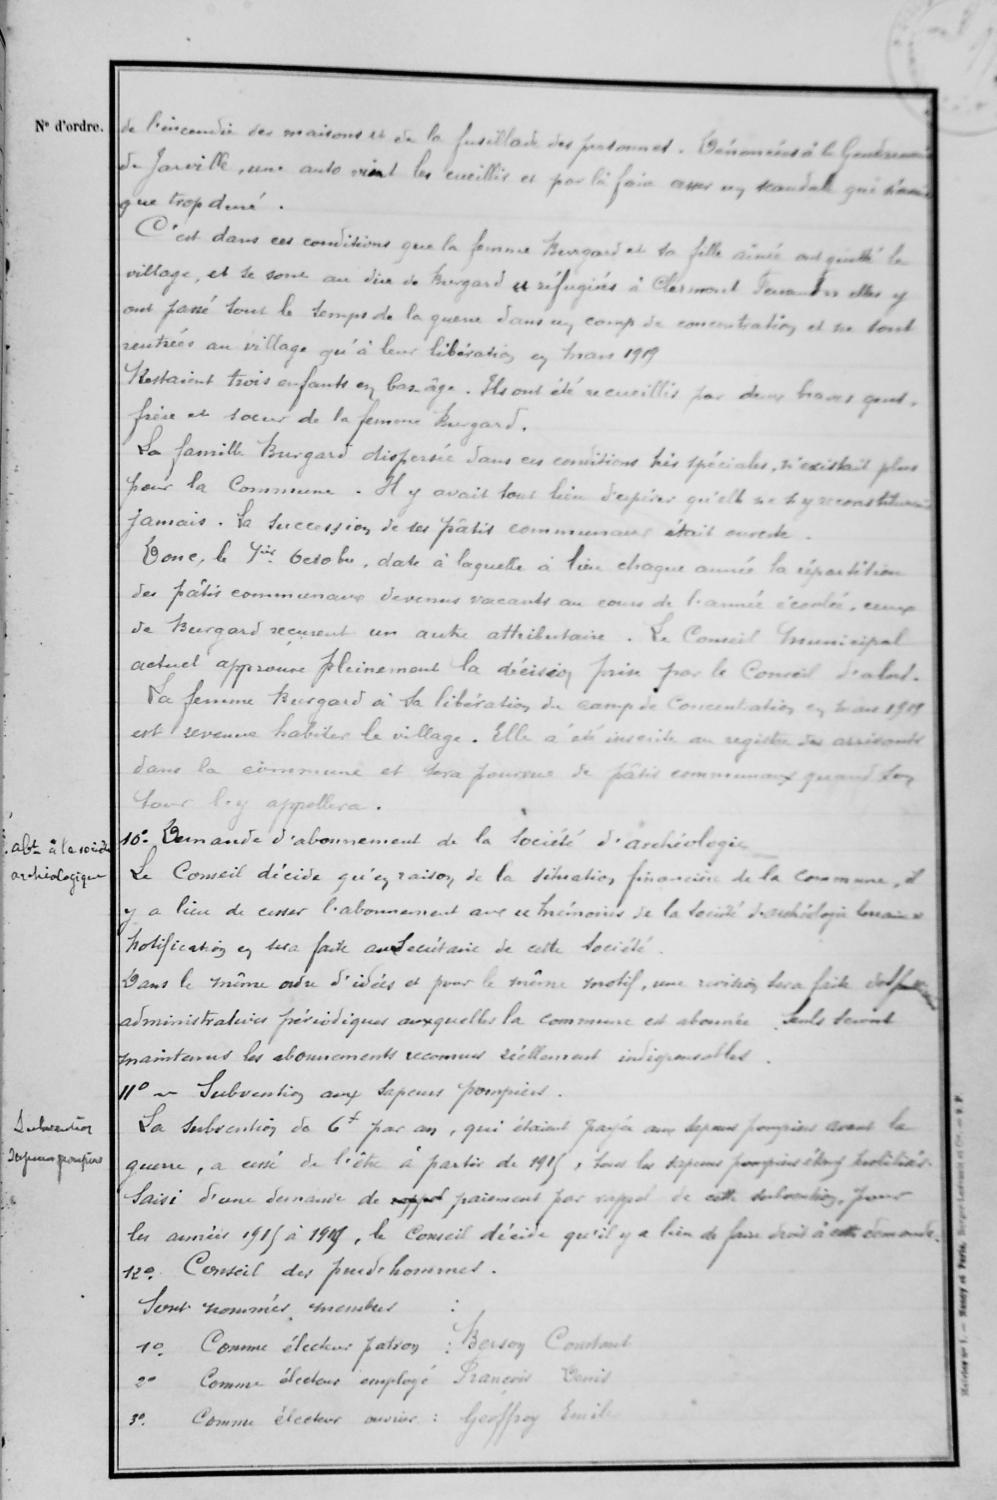 N° d'ordre.
de l'incendie des maisons et de la fusillade des personnes. Dénoncées à la Gendarmerie
de Jarville, une auto vint les cueillir et par là faire cesser un scandale qui n'avait
que trop duré.
C'est dans ces conditions que la femme Burgard et sa fille aînée ont quitté le
village, et se sont au dire de Burgard réfugiées à Clermont Ferrand elles y
ont passé tout le temps de la guerre dans un camp de concentration et ne sont
rentrées au village qu'à leur libération en mars 1919
Restaient trois enfants en bas-âge. Ils ont été recueillis par deux braves gens,
frère et soeur de la femme Burgard.
La famille Burgard dispersée dans ces conditions très spéciales, n'existait plus
pour la Commune. Il y avait tout lieu d'espérer qu'elle ne s'y reconstituerait
jamais. La succession de ses pâtis communaux était ouverte.
Donc, le 1er Octobre, date à laquelle a lieu chaque année la répartition
des pâtis communaux devenus vacants au cours de l'année écoulée, ceux
de Burgard reçurent un autre attributaire. Le Conseil Municipal
actuel approuve pleinement la décision prise par le Conseil d'alors.
La femme Burgard à sa libération du camp de Concentration en mars 1919
est revenue habiter le village. Elle a été inscrite au registre des arrivants
dans la commune et sera pourvue de pâtis communaux quand son
tour l'y appellera.
abt à la société
archéologique
10°- Demande d'abonnement de la Société d'archéologie
Le Conseil décide qu'en raison de la situation financière de la Commune, il
y a lieu de cesser l'abonnement aux mémoires de la Société d'archéologie lorraine
Notification en sera faite au Secrétaire de cette Société.
Dans le même ordre d'idées et pour le même motif, une revision sera faite des
administratives périodiques auxquelles la commune est abonnée. Seuls seront
maintenus les abonnements reconnus réellement indispensables.
11° ~ Subvention aux Sapeurs pompiers.
Subvention
Sapeurs pompiers
La subvention de 6f par an, qui était payée aux sapeurs pompiers avant la
guerre, a cessé de l'être à partir de 1915, tous les sapeurs pompiers étant mobilisés.
Saisi d'une demande de paiement par rappel de cette subvention, pour
les années 1915 à 1919, le Conseil décide qu'il y a lieu de faire droit à cette demande.
12°. Conseil des prud'hommes.
Sont nommés membres :
1°. Comme électeur patron : Berson Constant
2° Comme électeur employé François Denis
3°. Comme électeur ouvrier : Geoffroy Emile